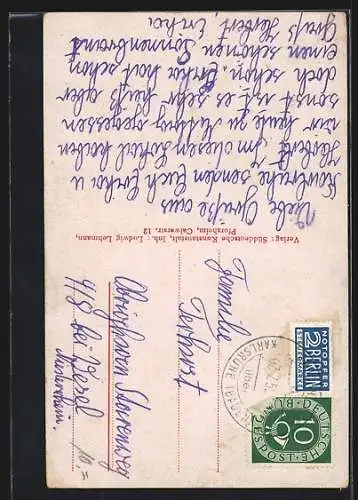 Liebe Grüße aus
Karlsruhe senden Euch Erika u
Herbert. In diesem Lokal haben
wir heute zu Mittag gegessen
sonst ist es sehr heiß aber
doch schön. Erika hat schon
einen schönen Sonnenbrand
Gruß Herbert Erika
Verlag: Süddeutsche Kunstanstalt, Inh.: Ludwig Lehmann,
Pforzheim, Calwerstr. 12
Familie
418 bei Wesel
Niederrhein.
10,=
KARLSRUHE
über
NOTOPFER
2 BERLIN
STEUERMARKE
DEUTSCHE BUNDESPOST
10